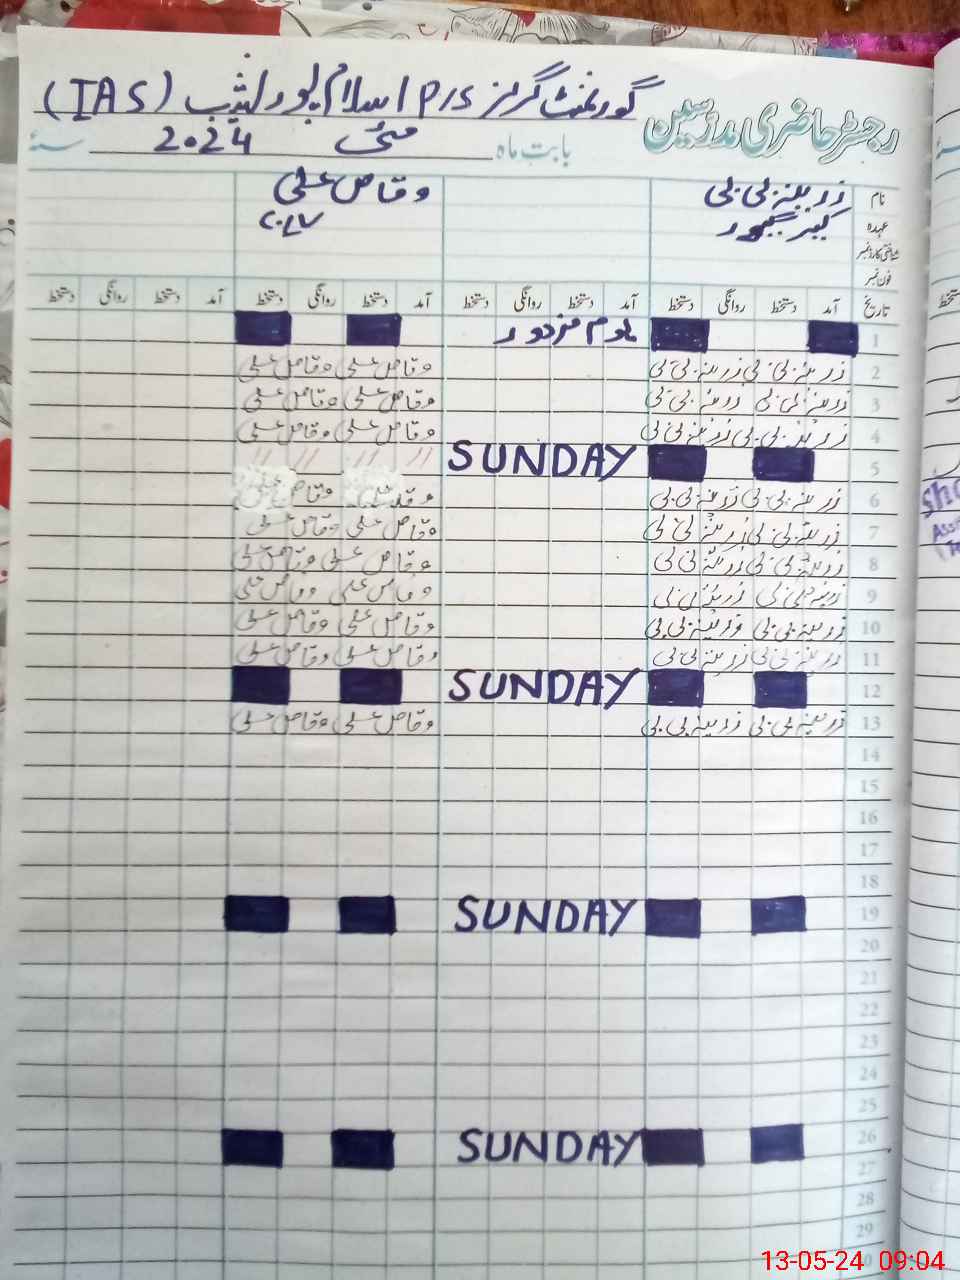 رجسٹر حاضری مدرسین
گورنمنٹ گرلز P/S اسلام پور (IAS)
بابت ماہ مئی 2024 سنۂ
نام زرینہ بی بی وقاص علی
عہدہ
شناختی کارڈ نمبر
فون نمبر
تاریخ آمد دستخط روانگی دستخط آمد دستخط روانگی دستخط آمد دستخط روانگی دستخط آمد دستخط روانگی دستخط
1 یوم مزدور
2 زرینہ بی بی زرینہ بی بی وقاص علی وقاص علی
3 زرینہ بی بی زرینہ بی بی وقاص علی وقاص علی
4 زرینہ بی بی زرینہ بی بی وقاص علی وقاص علی
5 SUNDAY // // // //
6 زرینہ بی بی زرینہ بی بی وقاص علی وقاص علی
7 زرینہ بی بی زرینہ بی بی وقاص علی وقاص علی
8 زرینہ بی بی زرینہ بی بی وقاص علی وقاص علی
9 زرینہ بی بی زرینہ بی بی وقاص علی وقاص علی
10 زرینہ بی بی زرینہ بی بی وقاص علی وقاص علی
11 زرینہ بی بی زرینہ بی بی وقاص علی وقاص علی
12 SUNDAY
13 زرینہ بی بی زرینہ بی بی وقاص علی وقاص علی
14
15
16
17
18
19 SUNDAY
20
21
22
23
24
25
26 SUNDAY
27
28
29
13-05-24 09:04